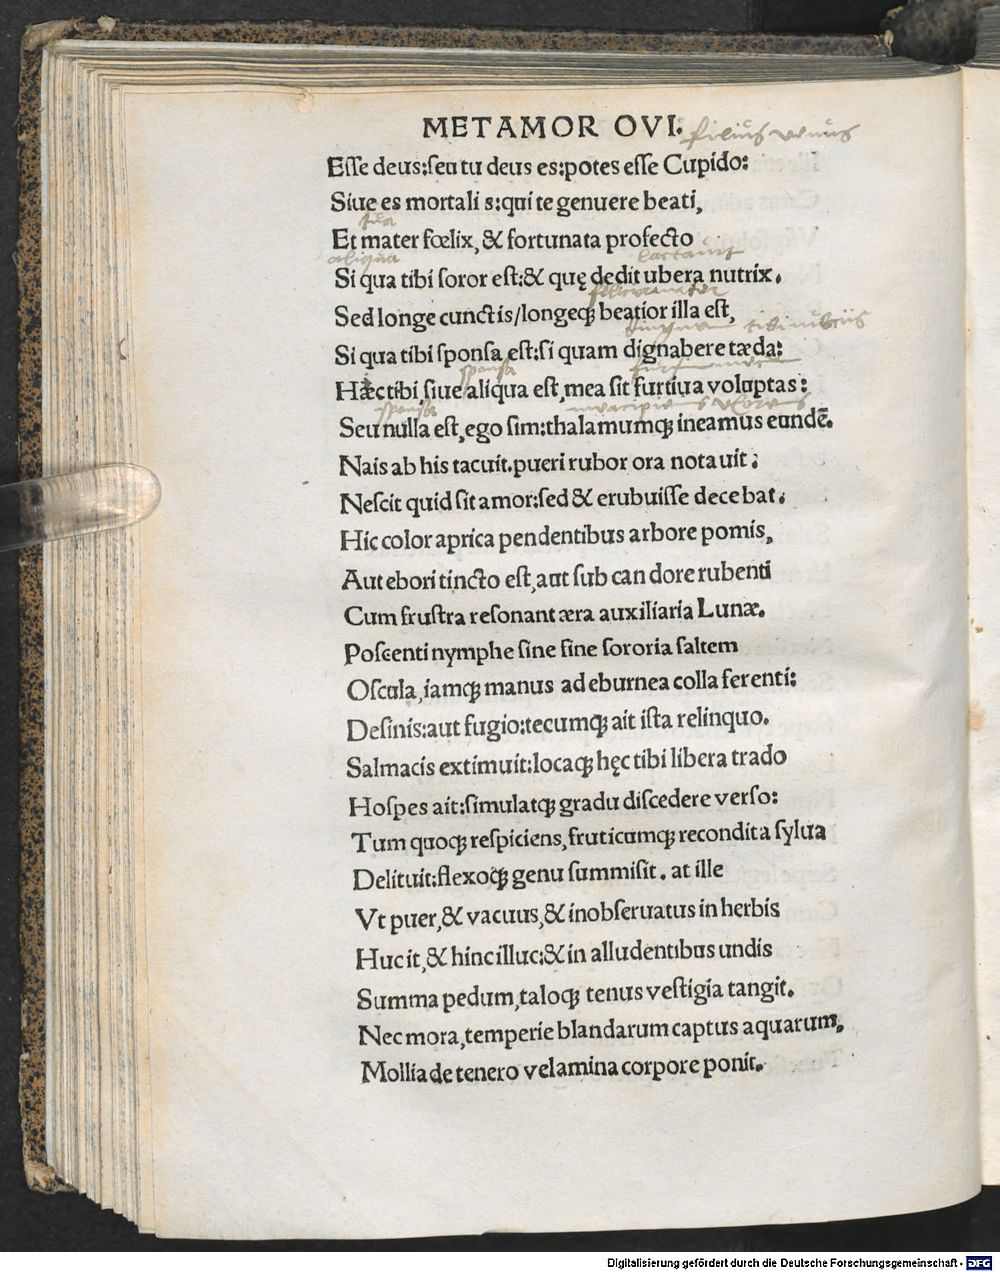 METAMOR OVI.
filius
Esse deus:seu tu deus es:potes esse Cupido:
Siue es mortali s:qui te genuere beati,
tua
Et mater fœlix, & fortunata profecto
aliqua
Si qua tibi soror est:& quę dedit ubera nutrix.
Sed longe cunctis/longeqꝫ beatior illa est,
Si qua tibi sponsa est:si quam dignabere tæda:
sponsa
Hæc tibi siue aliqua est,mea sit furtiua voluptas:
sponsa
Seu nulla est,ego sim:thalamumqꝫ ineamus eundē.
Nais ab his tacuit.pueri rubor ora notauit:
Nescit quid sit amor:sed & erubuisse decebat.
Hic color aprica pendentibus arbore pomis,
Aut ebori tincto est,aut sub candore rubenti
Cum frustra resonant æra auxiliaria Lunæ.
Poscenti nymphe sine fine sororia saltem
Oscula,iamqꝫ manus ad eburnea colla ferenti:
Desinis:aut fugio:tecumqꝫ ait ista relinquo.
Salmacis extimuit:locaqꝫ hęc tibi libera trado
Hospes ait:simulatqꝫ gradu discedere verso:
Tum quoqꝫ respiciens,fruticumqꝫ recondita sylua
Delituit:flexoqꝫ genu summisit. at ille
Vt puer,& vacuus,& inobseruatus in herbis
Huc it,& hinc illuc:& in alludentibus undis
Summa pedum,taloqꝫ tenus vestigia tangit.
Nec mora,temperie blandarum captus aquarum,
Mollia de tenero velamina corpore ponit.
Digitalisierung gefördert durch die Deutsche Forschungsgemeinschaft - DFG